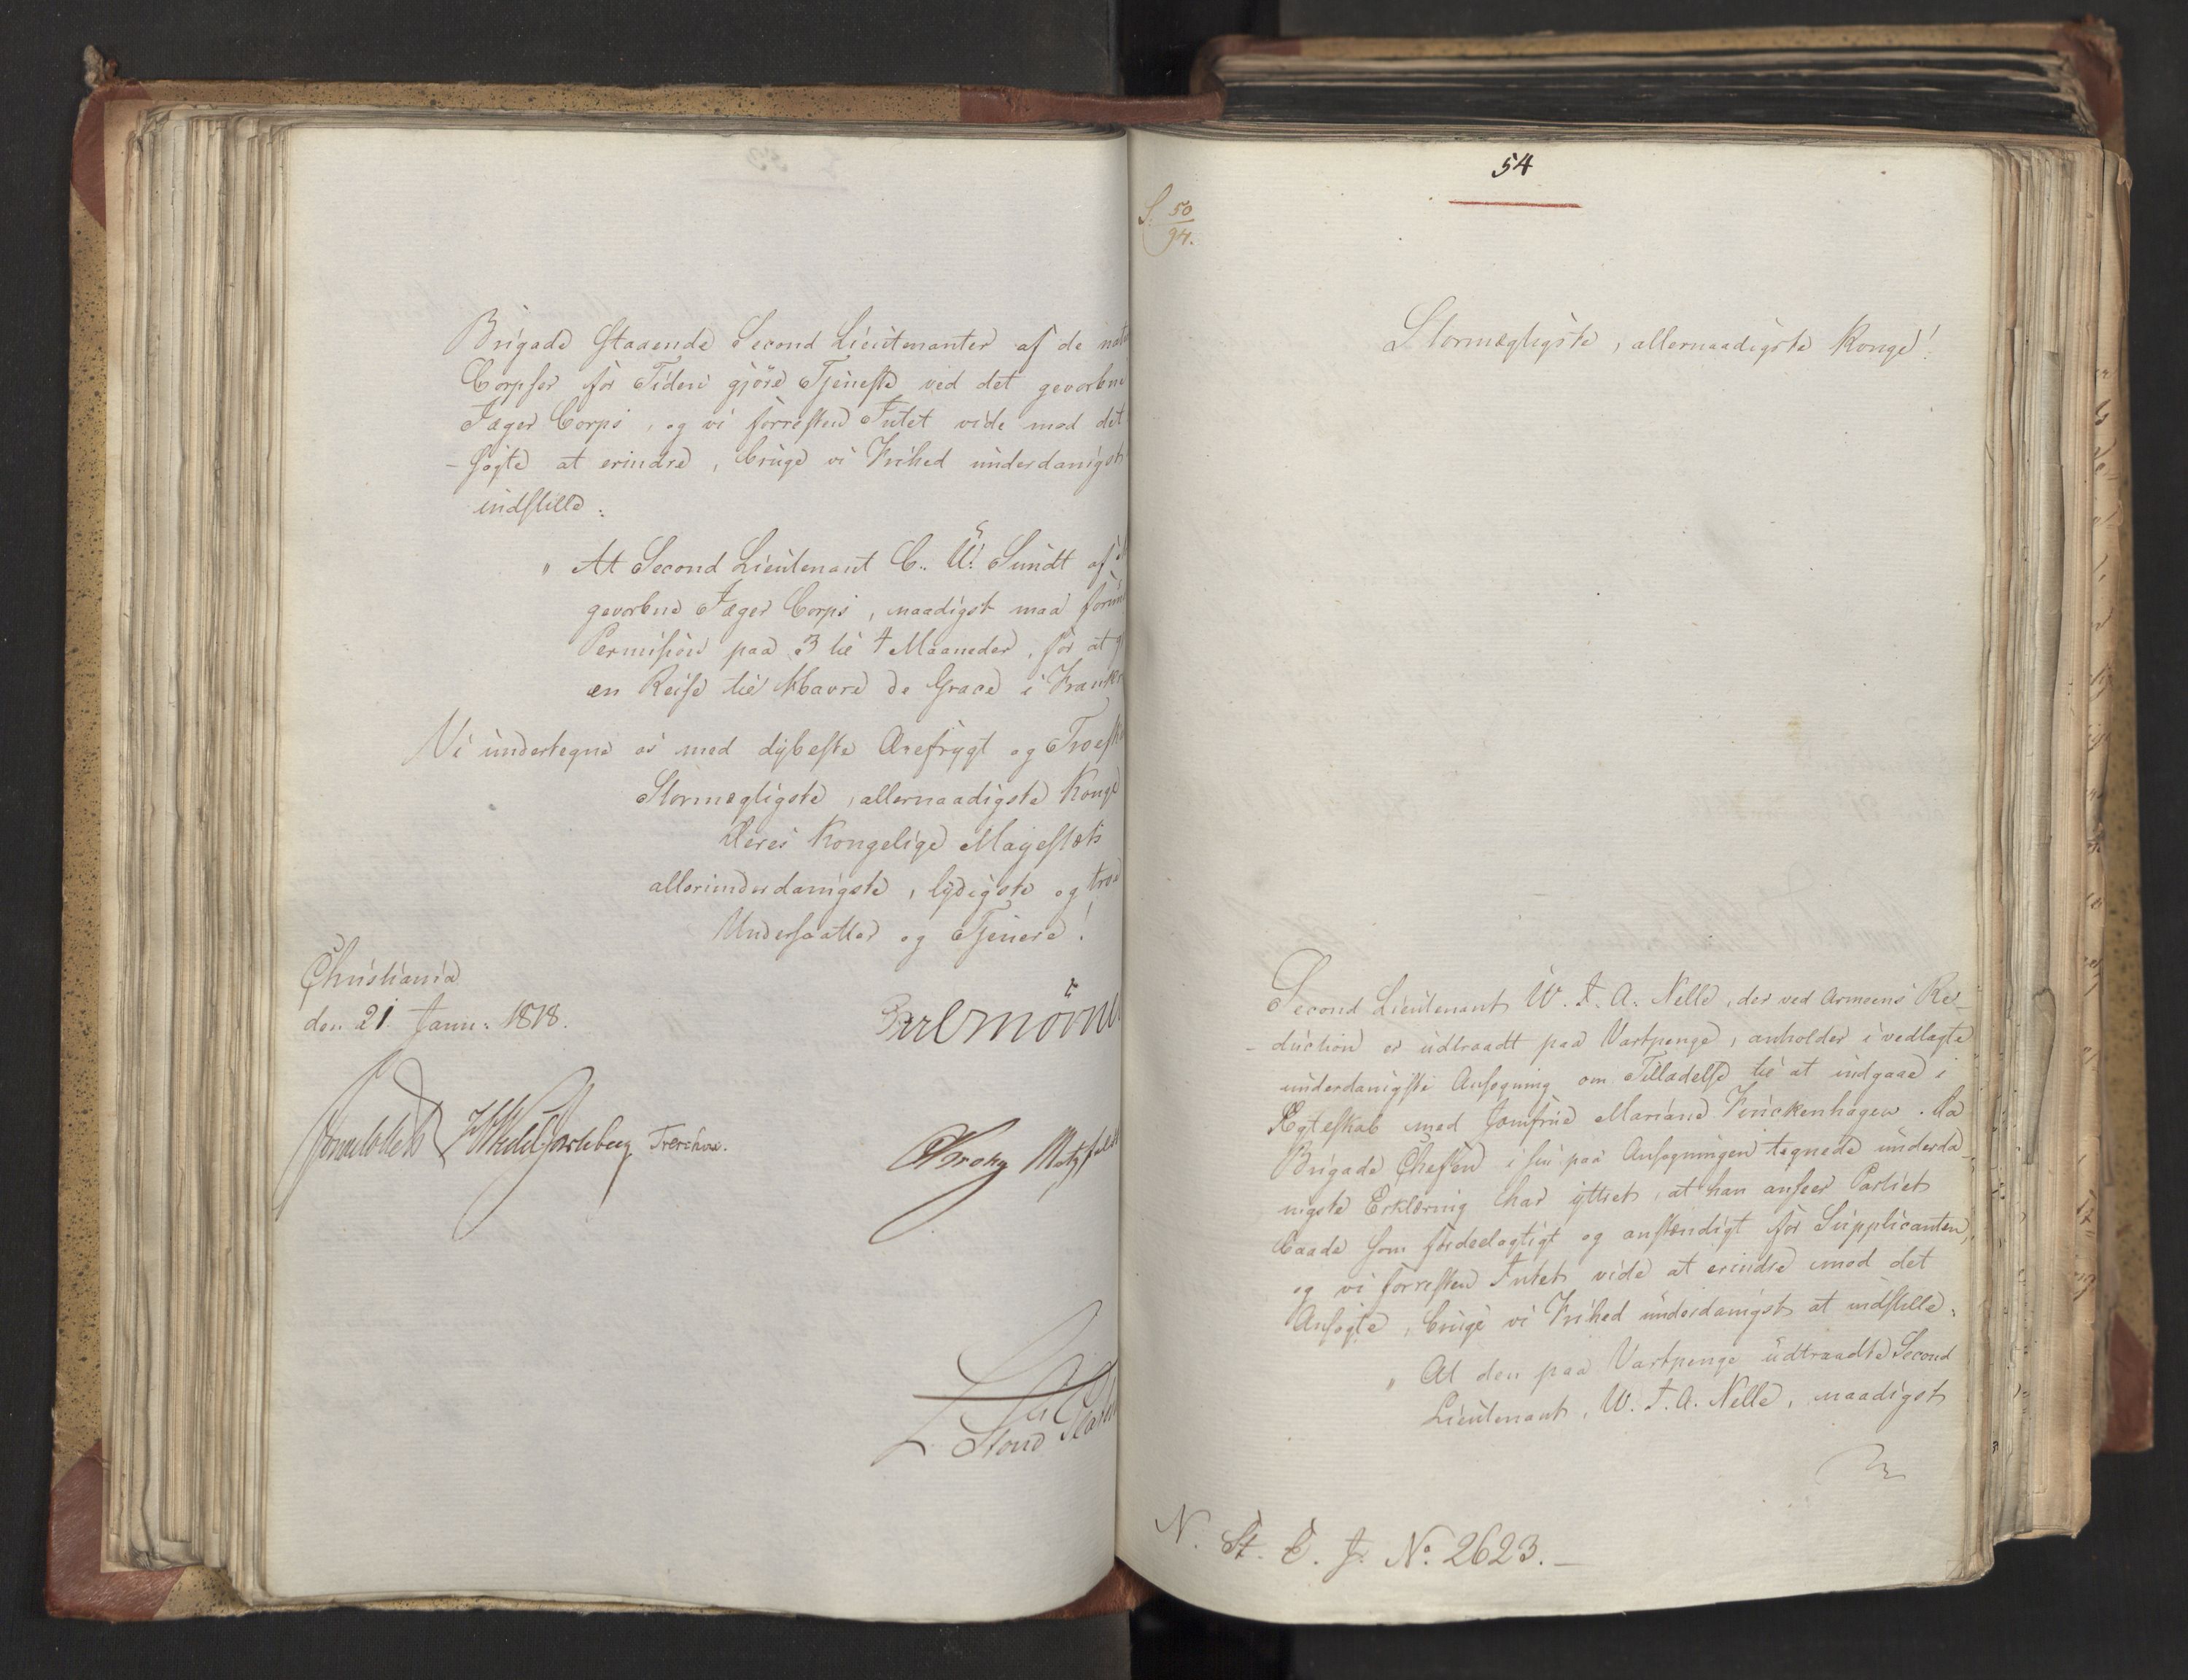 Brigade staaende Second Lieutenanter af de
Corpser for Tiden gjöre Tjeneste ved det gevorbne
Jæger Corps, og vi forresten Intet vide mod det
-søgte at erindre, bruge vi Frihed underdanigst
indstille:
„ At Second Lieutenant C. U. Sundt af
gevorbne Jæger Corps, naadigst maa
Permission paa 3 til 4 Maaneder, for at
en Reise til Havre de Grace i
Vi undertegne os med dybeste Ærefrygt og
Stormægtigste, allernaadigste Konge
Deres Kongelige Majestæts
allerunderdanigste, lydigste og troe
Undersaatter og Tjenere!
Christiania
den 21 Janu: 1818.
Mörner
Sommerhielm HWedelJarlsberg Treschow.
CKrohg Motzfeldt
54
S. 50
94.
Stormægtigste, allernaadigste Konge!
Second Lieutenant W. F. A. Nelle, der ved Armeens Re-
-duction er udtraadt paa Vartpenge, anholder i vedlagte
underdanigste Ansøgning om Tilladelse til at indgaae i
Ægteskab med Jomfrue Mariane Frickenhagen. Da
Brigade Chefen i sin paa Ansøgningen tegnede underda-
nigste Erklæring har yttret, at han anseer Partiet
baade som fordeelagtigt og anstændigt for Supplicanten,
og vi forresten Intet vide at erindre mod det
Ansøgte, bruge vi Frihed underdanigst at indstille:
„ At den paa Vartpenge udtraadte Second
Lieutenant, W. F. A. Nelle, naadigst
N. St. E. J. No. 2623.